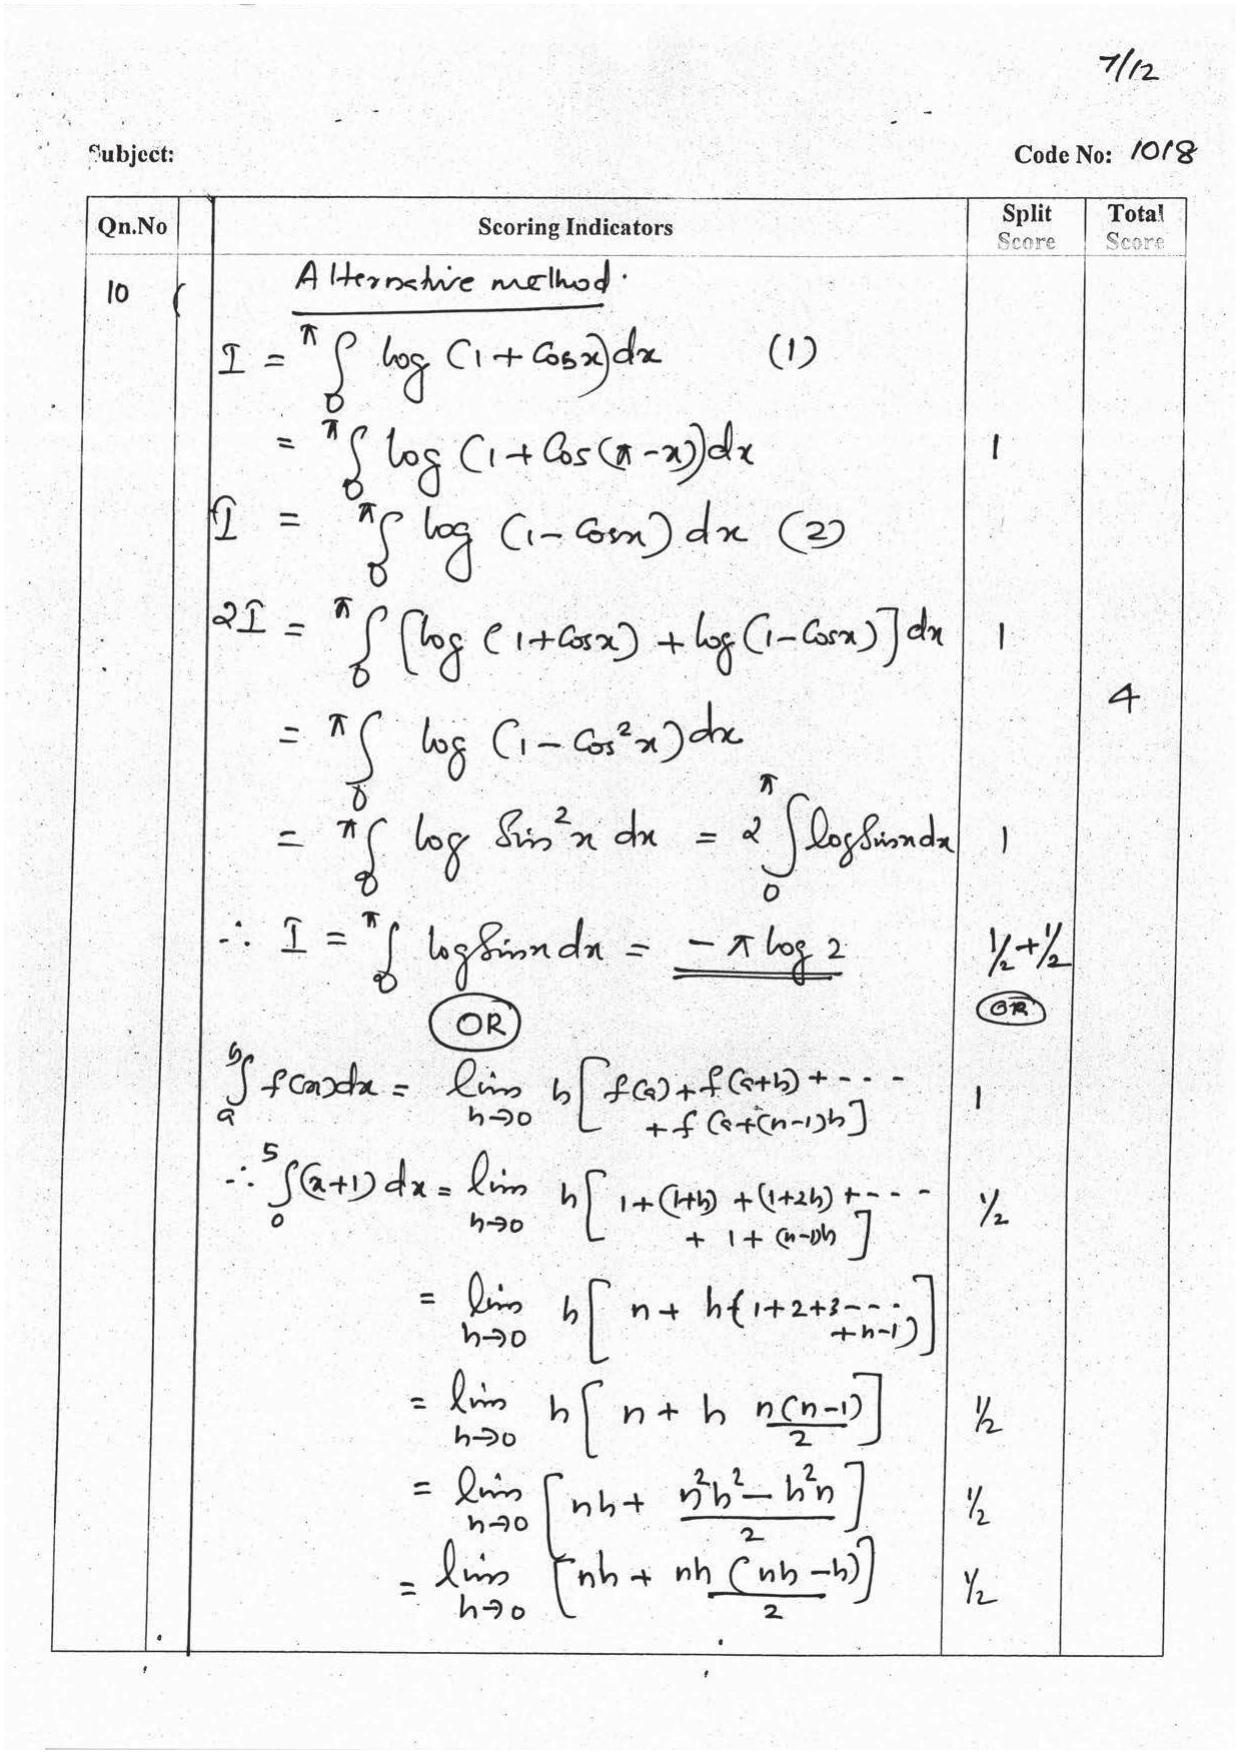 7/12
Subject: Code No: 1018
Qn.No Scoring Indicators Split Score Total Score
10 ( Alternative method.
I = ∫₀^π log (1 + Cos x) dx (1)
= ∫₀^π log (1 + Cos (π - x)) dx 1
I = ∫₀^π log (1 - Cos x) dx (2)
2I = ∫₀^π [log (1 + Cos x) + log (1 - Cos x)] dx 1
4
= ∫₀^π log (1 - Cos² x) dx
= ∫₀^π log Sin² x dx = 2 ∫₀^π log Sin x dx 1
∴ I = ∫₀^π log Sin x dx = - π log 2 ½ + ½
OR OR
∫ₐᵇ f(x) dx = lim h→0 h [ f(a) + f(a+h) + - - - - 1
+ f(a+(n-1)h ]
∴ ∫₀⁵ (x+1) dx = lim h→0 h [ 1 + (1+h) + (1+2h) + - - - - ½
+ 1 + (n-1)h ]
= lim h→0 h [ n + h { 1+2+3 - - - .
+ n-1) ]
= lim h→0 h [ n + h n(n-1)/2 ] ½
= lim h→0 [ nh + (n²h² - h²n)/2 ] ½
= lim h→0 [ nh + nh (nh - h)/2 ] ½